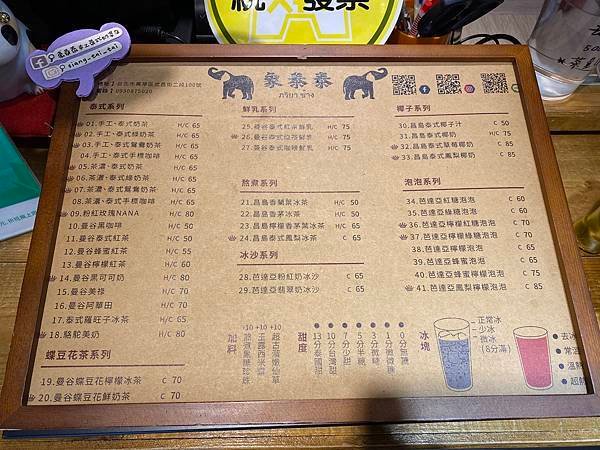 統一發票
siang-tai-tai
象泰泰
ภรรยา ช้าง
台北市萬華區武昌街二段100號
0930875020
泰式系列
01.手工·泰式奶茶 H/C 65
02.手工·泰式綠奶茶 H/C 65
03.手工·泰式鴛鴦奶茶 H/C 65
04.手工·泰式手標咖啡 H/C 65
05.茶濃·泰式奶茶 H/C 65
06.茶濃·泰式綠奶茶 H/C 65
07.茶濃·泰式鴛鴦奶茶 H/C 65
08.茶濃·泰式手標咖啡 H/C 65
09.粉紅玫瑰NANA H/C 80
10.曼谷黑咖啡 H/C 50
11.曼谷泰式紅茶 H/C 50
12.曼谷蜂蜜紅茶 H/C 55
13.曼谷檸檬紅茶 H/C 60
14.曼谷黑可可奶 H/C 80
15.曼谷美祿 H/C 70
16.曼谷阿華田 H/C 70
17.泰式羅旺子冰茶 C 65
18.駱駝美奶 H/C 80
蝶豆花茶系列
19.曼谷蝶豆花檸檬冰茶 C 70
20.曼谷蝶豆花鮮奶茶 C 70
鮮乳系列
25.曼谷泰式紅茶鮮乳 H/C 75
26.曼谷泰式綠茶鮮乳 H/C 75
27.曼谷泰式咖啡鮮乳 H/C 75
熬煮系列
21.昌島香蘭葉冰茶 H/C 50
22.昌島香茅冰茶 H/C 50
23.昌島檸檬香茅葉冰茶 H/C 65
24.昌島泰式鳳梨冰茶 C 65
冰沙系列
28.芭達亞粉紅奶冰沙 C 65
29.芭達亞翡翠奶冰沙 C 65
椰子系列
30.昌島泰式椰子汁 C 50
31.昌島泰式椰奶 H/C 75
32.昌島泰式草莓椰奶 C 85
33.昌島泰式鳳梨椰奶 C 85
泡泡系列
34.芭達亞紅糖泡泡 C 60
35.芭達亞綠糖泡泡 C 60
36.芭達亞檸檬紅糖泡泡 C 70
37.芭達亞檸檬綠糖泡泡 C 70
38.芭達亞檸檬泡泡 C 65
39.芭達亞蜂蜜泡泡 C 65
40.芭達亞蜂蜜檸檬泡泡 C 75
41.芭達亞鳳梨檸檬泡泡 C 85
加料
+10 +10 +10
熬煮黑糖珍珠
玉露西米露
超古濃嫩仙草
甜度
13分泰國甜
10分台灣甜
7分少甜
5分半糖
3分微糖
1分微微糖
0分無糖
冰塊
正常冰
少冰
微冰
(8分滿)
去冰
常溫
溫熱
超熱